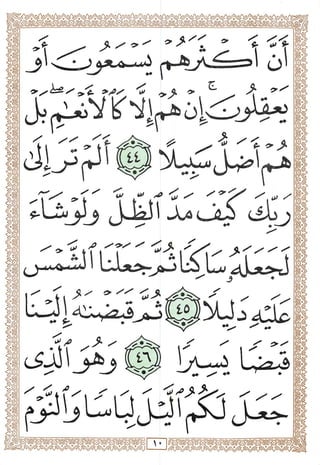 أَنَّ أَكْثَرَهُمْ يَسْمَعُونَ أَوْ
يَعْقِلُونَ ۚ إِنْ هُمْ إِلَّا كَالْأَنْعَٰمِ ۖ بَلْ
هُمْ أَضَلُّ سَبِيلًا ٤٤ أَلَمْ تَرَ إِلَىٰ
رَبِّكَ كَيْفَ مَدَّ ٱلظِّلَّ وَلَوْ شَآءَ
لَجَعَلَهُۥ سَاكِنًا ثُمَّ جَعَلْنَا ٱلشَّمْسَ
عَلَيْهِ دَلِيلًا ٤٥ ثُمَّ قَبَضْنَٰهُ إِلَيْنَا
قَبْضًا يَسِيرًا ٤٦ وَهُوَ ٱلَّذِى
جَعَلَ لَكُمُ ٱلَّيْلَ لِبَاسًا وَٱلنَّوْمَ
١٠